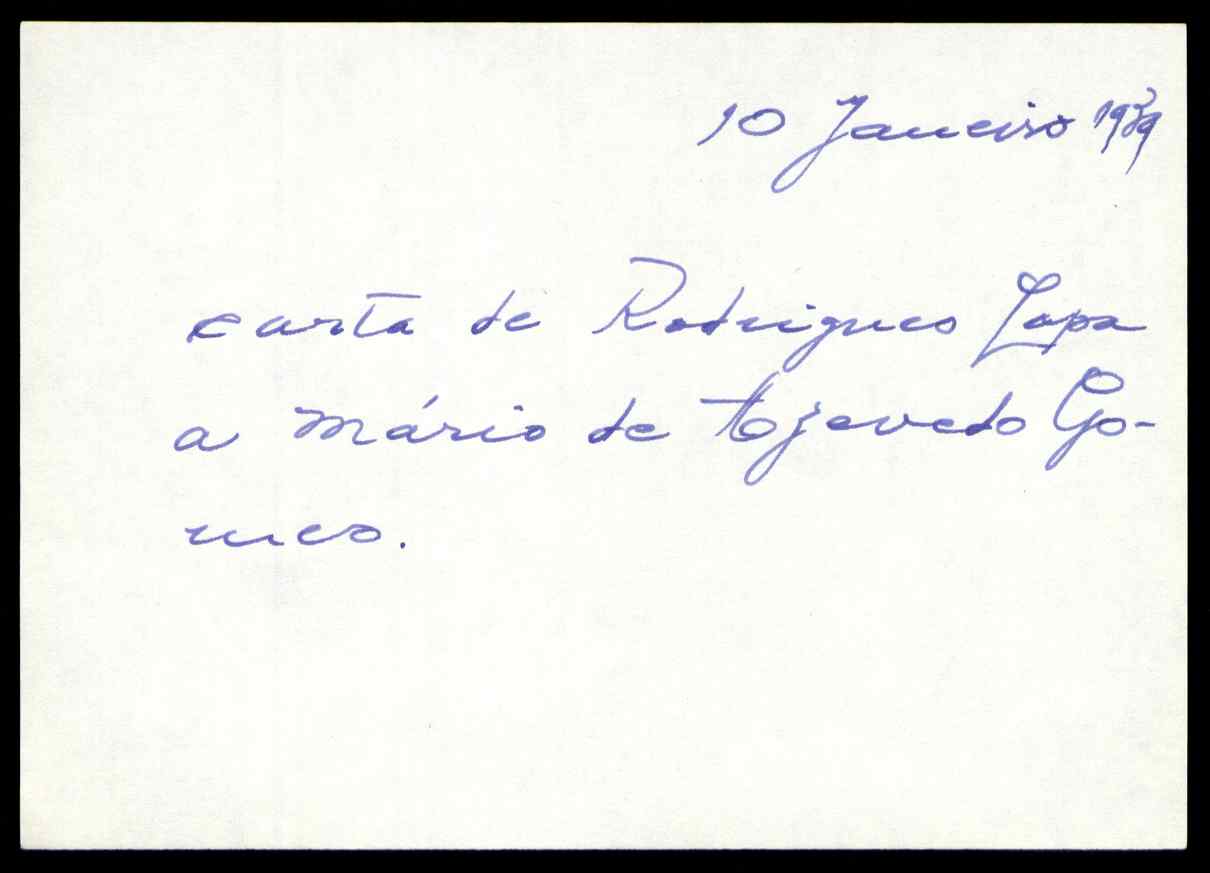 10 Janeiro 1939
carta de Rodrigues Lapa
a Mário de Azevedo Go-
mes.